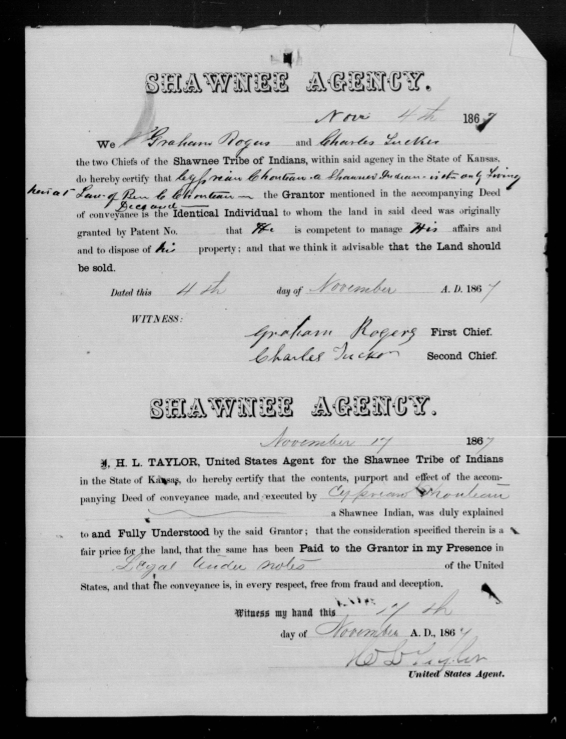 SHAWNEE AGENCY.
Nov 4th 1867
We Graham Rogers and Charles Tucker
the two Chiefs of the Shawnee Tribe of Indians, within said agency in the State of Kansas,
do hereby certify that Cyprian Chouteau a Shawnee Indian is the only Living
heir at Law of Ben C Chouteau Deceased the Grantor mentioned in the accompanying Deed
of conveyance is the Identical Individual to whom the land in said deed was originally
granted by Patent No. that He is competent to manage His affairs and
and to dispose of his property; and that we think it advisable that the Land should
be sold.
Dated this 4th day of November A. D. 1867
WITNESS:
Graham Rogers First Chief.
Charles Tucker Second Chief.
SHAWNEE AGENCY.
November 17 1867
I, H. L. TAYLOR, United States Agent for the Shawnee Tribe of Indians
in the State of Kansas, do hereby certify that the contents, purport and effect of the accom-
panying Deed of conveyance made, and executed by Cyprian Chouteau
a Shawnee Indian, was duly explained
to and Fully Understood by the said Grantor; that the consideration specified therein is a
fair price for the land, that the same has been Paid to the Grantor in my Presence in
Legal Tender notes of the United
States, and that the conveyance is, in every respect, free from fraud and deception.
Witness my hand this 17th
day of November A. D., 1867
H L Taylor
United States Agent.